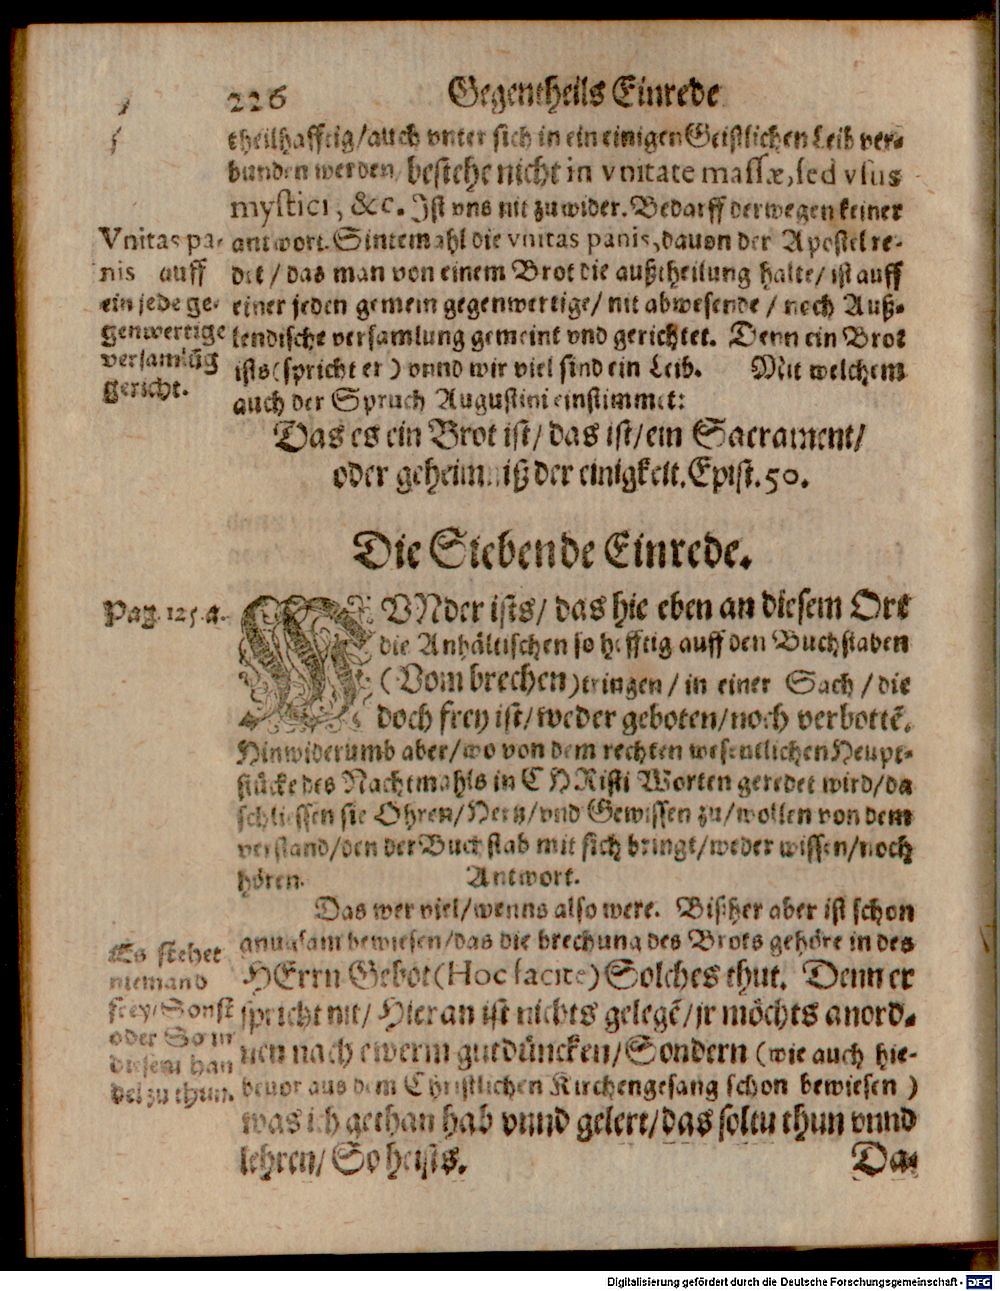 226 Gegentheils Einrede
theilhafftig/auch vnter sich in ein einigen Geistlichen Leib ver-
bunden werden/bestehe nicht in vnitate massæ, sed vsus
mystici, &c. Ist vns nit zuwider. Bedarff derwegen keiner
antwort. Sintemahl die vnitas panis, dauon der Apostel re-
det/das man von einem Brot die außtheilung halte/ist auff
einer jeden gemein gegenwertige/nit abwesende/noch Auß-
lendische versamlung gemeint vnd gerichtet. Denn ein Brot
ists (spricht er) vnnd wir viel sind ein Leib. Mit welchem
auch der Spruch Augustini einstimmet:
Vnitas pa-
nis auff
ein jede ge-
genwertige
versamlūg
gericht.
Das es ein Brot ist/das ist/ein Sacrament/
oder geheimniß der einigkeit. Epist. 50.
Die Siebende Einrede.
Pag. 125. a.
WVNder ists/das hie eben an diesem Ort
die Anhältischen so hefftig auff den Buchstaben
(Vom brechen) tringen/in einer Sach/die
doch frey ist/weder geboten/noch verbottē.
Hinwiderumb aber/wo von dem rechten wesentlichen Heupt-
stücke des Nachtmahls in CHRisti Worten geredet wird/da
schliessen sie Ohren/Hertz/vnd Gewissen zu/wollen von dem
verstand/den der Buchstab mit sich bringt/weder wissen/noch
hören. Antwort.
Das wer viel/wenns also were. Bißher aber ist schon
gnugsam bewiesen/das die brechung des Brots gehöre in des
HErrn Gebot (Hoc facite) Solches thut. Denn er
spricht nit/Hieran ist nichts gelegē/jr möchts anord-
nen nach ewerm gutdüncken/Sondern (wie auch hie-
beuor aus dem Christlichen Kirchengesang schon bewiesen)
was ich gethan hab vnnd gelert/das soltu thun vnnd
lehren/So heists.
Es stehet
niemand
frey/Sonst
oder So in
diesem han
del zu thun.
Da-
Digitalisierung gefördert durch die Deutsche Forschungsgemeinschaft - DFG